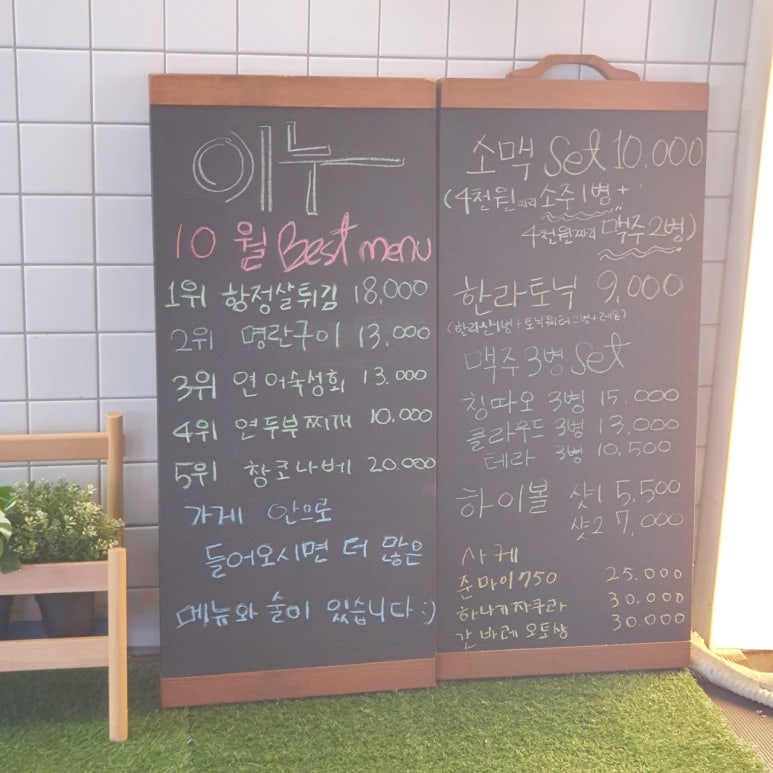 이누
10월 Best menu
1위 항정살튀김 18,000
2위 명란구이 13.000
3위 연어숙성회 13.000
4위 연두부찌개 10.000
5위 창코나베 20.000
가게 안으로
들어오시면 더 많은
메뉴와 술이 있습니다 :)
소맥 Set 10.000
(4천원짜리 소주1병 +
4천원짜리 맥주2병)
한라토닉 9,000
(한라산1병 + 토닉워터2병 + 레몬)
맥주 3병 Set
칭따오 3병 15.000
클라우드 3병 13,000
테라 3병 10,500
하이볼 샷1 5,500
샷2 7,000
사케
준마이750 25.000
하나키자쿠라 30.000
간바레오토상 30.000